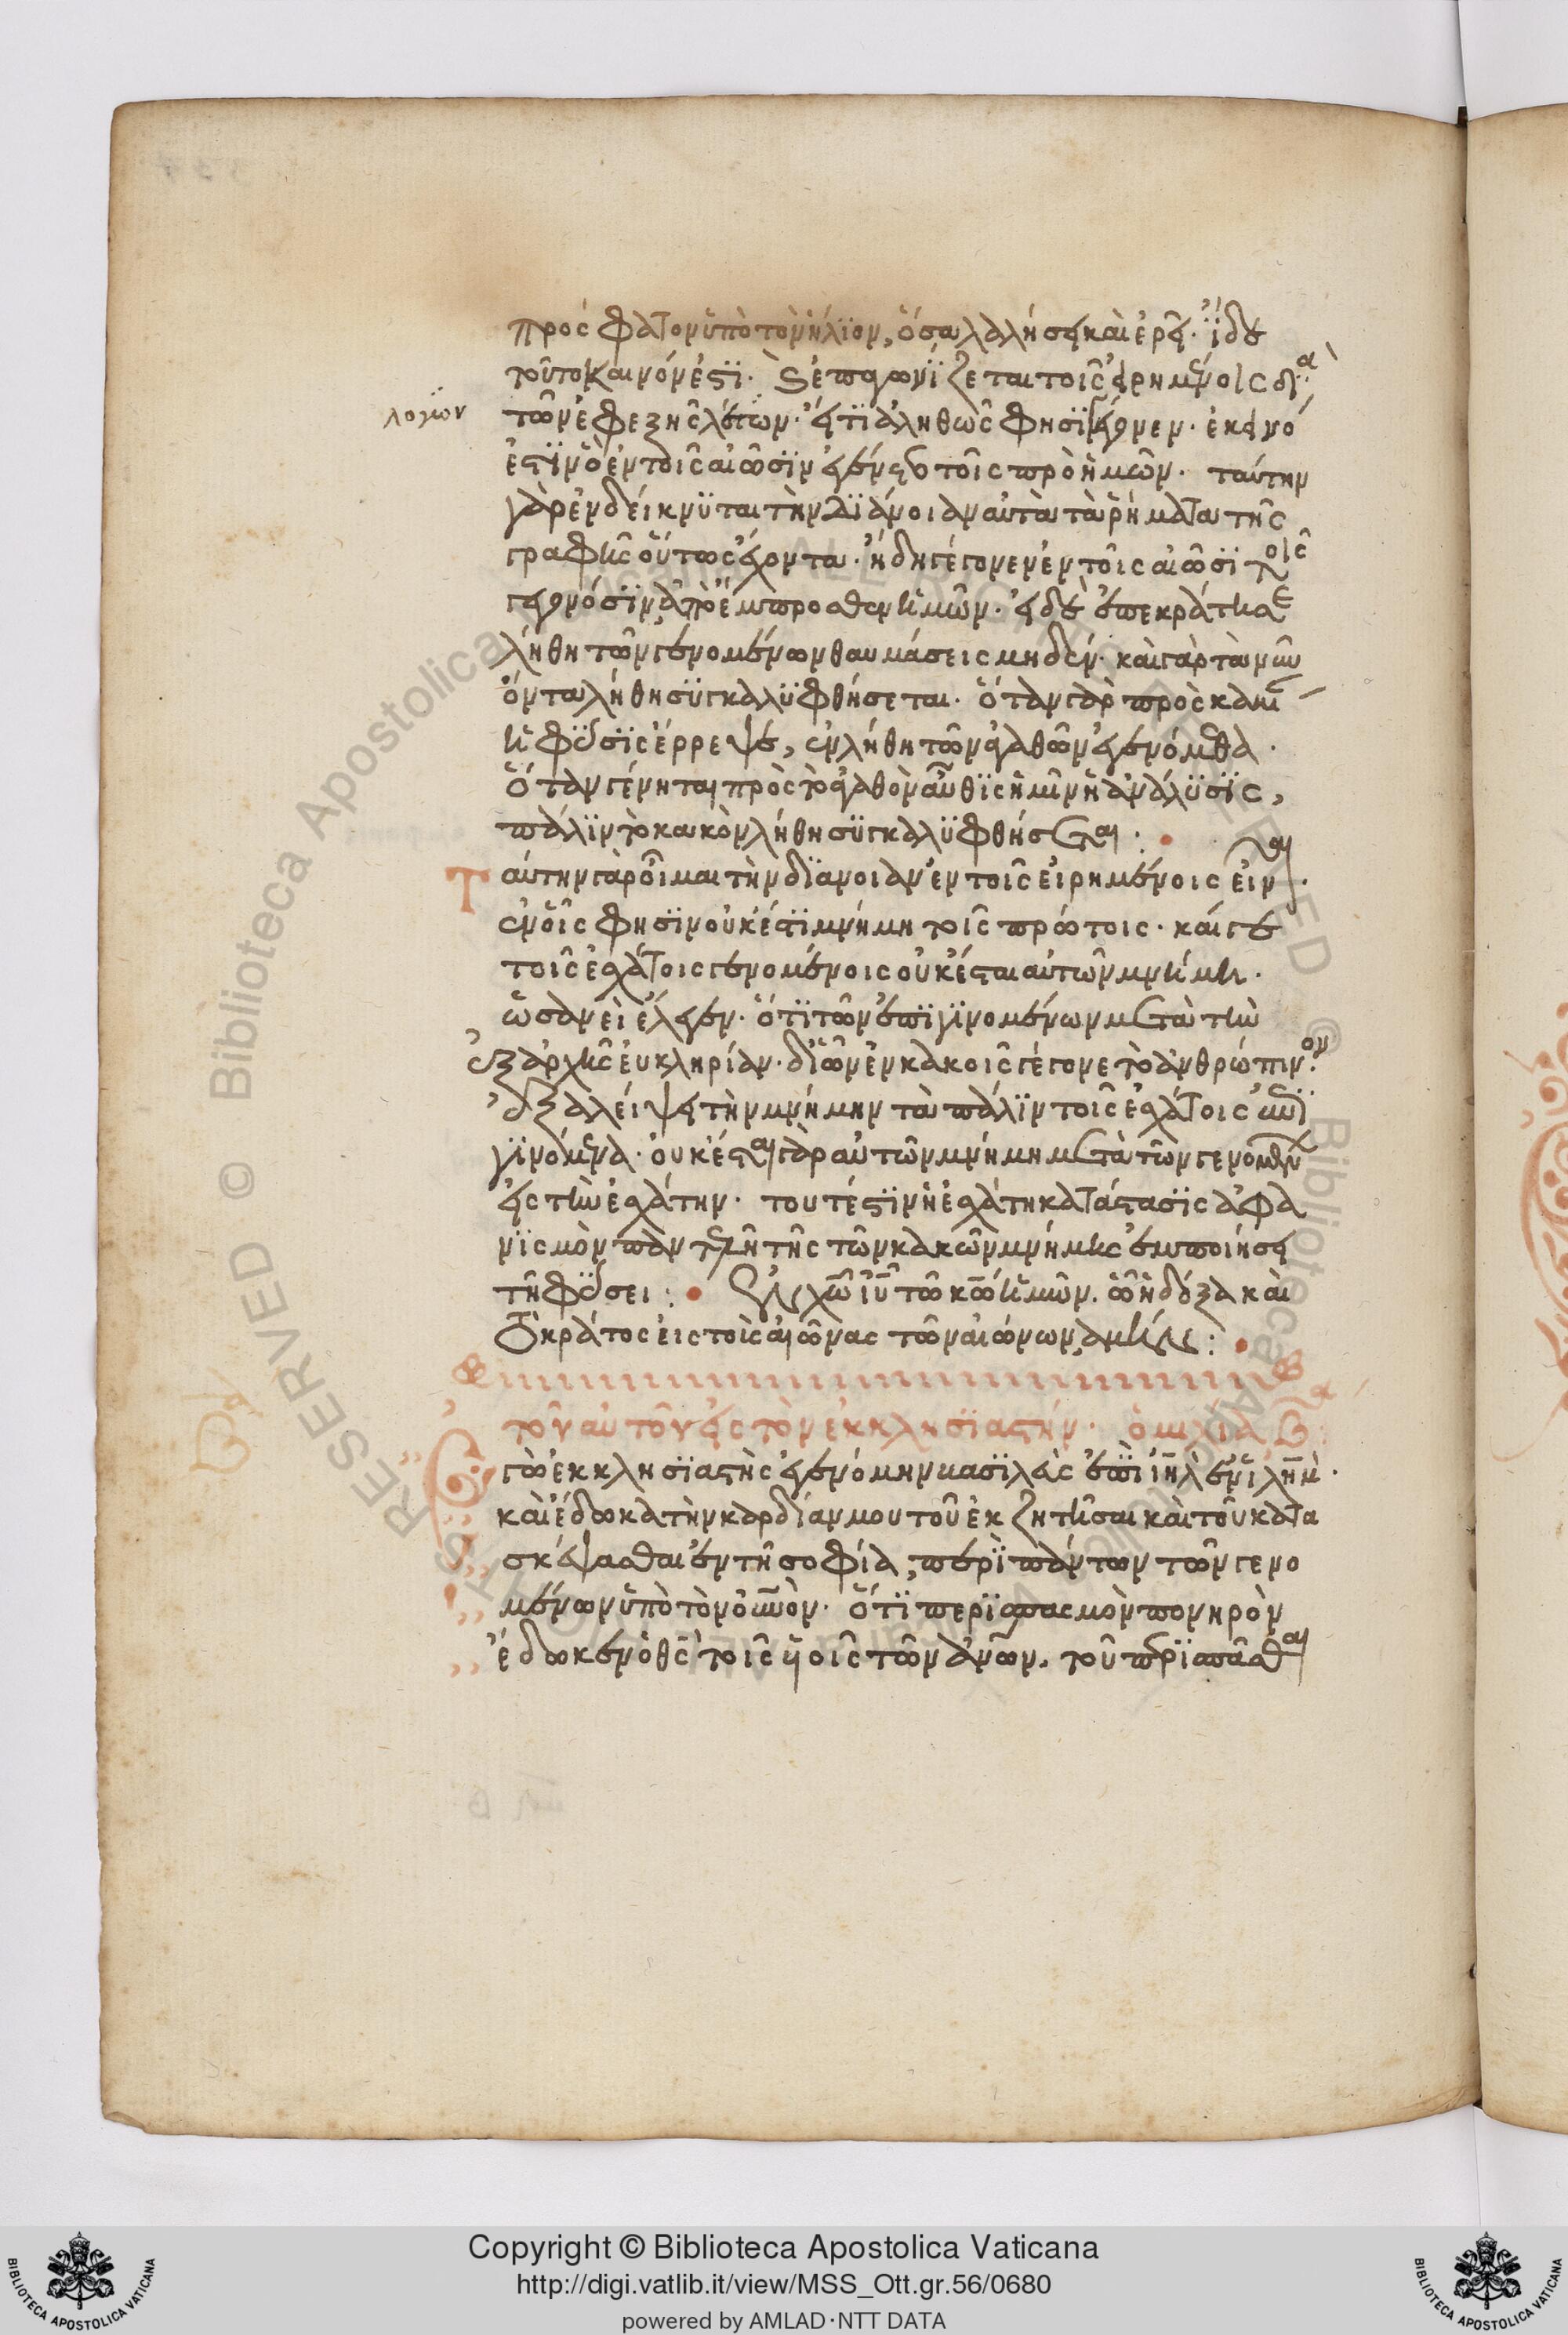 πρόσφατον ὑπὸ τὸν ἥλιον, ὅσα λαλήσει καὶ ἐρεῖ· ἴδε
τοῦτο καινόν ἐστι· καὶ ἐπαγωνίζεται τοῖς εἰρημένοις διὰ
λογίων
τῶν ἐφεξῆς λόγων· εἴ τι ἀληθῶς φησι γέγονεν· ἐκεῖνό
ἐστιν ὃ ἐν τοῖς αἰῶσιν ἐγένετο τοῖς πρὸ ἡμῶν· ταύτην
γὰρ ἐνδείκνυται τὴν διάνοιαν αὐτὰ τὰ ῥήματα τῆς
γραφῆς οὕτως ἔχοντα· ἤδη γέγονεν ἐν τοῖς αἰῶσι τοῖς
γεγονόσιν ἀπὸ ἔμπροσθεν ἡμῶν· εἰ δὲ ἐπεκράτησε
λήθη τῶν γενομένων θαυμάσεις μηδέν· καὶ γὰρ τὰ νῦν
ὄντα λήθη συγκαλυφθήσεται· ὅταν γὰρ πρὸς κακίαν
ἡ φύσις ἔρρεψε, ἐν λήθη τῶν ἀγαθῶν ἐγενόμεθα·
ὅταν γένηται πρὸς τὸ ἀγαθὸν αὖθις ἡμῖν ἡ ἀνάλυσις,
πάλιν τὸ κακὸν λήθη συγκαλυφθήσεται:
Ταύτην γὰρ οἶμαι τὴν διάνοιαν ἐν τοῖς εἰρημένοις εἶναι·
ἐν οἷς φησιν οὐκ ἔστι μνήμη τοῖς πρώτοις· καί γε
τοῖς ἐσχάτοις γενομένοις οὐκ ἔσται αὐτῶν μνήμη·
ὡσανεὶ ἔλεγεν· ὅτι τῶν ἐπιγινομένων μετὰ τὴν
ἐξ ἀρχῆς εὐκληρίαν· δι' ὧν ἐν κακοῖς γέγονε τὸ ἀνθρώπινον·
ἐξαλείψει τὴν μνήμην τὰ πάλιν τοῖς ἐσχάτοις
γινόμενα· οὐκ ἔσται γὰρ αὐτῶν μνήμη μετὰ τῶν γενομένων
εἰς τὴν ἐσχάτην· τουτέστιν ἡ ἐσχάτη κατάστασις ἀφα
νισμὸν παντελῆ τῆς τῶν κακῶν μνήμης ἐμποιήσει
τῆ φύσει: ἐν χῶ ἰυ τῶ κῶ ἡμῶν. ὧ ἡ δόξα καὶ
τὸ κράτος εἰς τοὺς αἰῶνας τῶν αἰώνων, ἀμήν:
τοῦ αὐτοῦ εἰς τὸν ἐκκλησιαστήν· ὁμιλία β
Ἐγὼ ἐκκλησιαστὴς ἐγενόμην βασιλεὺς ἐπὶ ιηλ ἐν ιλημ·
καὶ ἔδωκα τὴν καρδίαν μου τοῦ ἐκζητῆσαι καὶ τοῦ κατα
σκέψασθαι ἐν τῆ σοφία, περὶ πάντων τῶν γενο
μένων ὑπὸ τὸν οὐνὸν· ὅτι περισπασμὸν πονηρὸν
ἔδωκεν ὁ θς τοῖς υἱοῖς τῶν ἀνων. τοῦ περισπᾶσθαι
Copyright © Biblioteca Apostolica Vaticana
http://digi.vatlib.it/view/MSS_Ott.gr.56/0680
powered by AMLAD·NTT DATA
BIBLIOTECA APOSTOLICA VATICANA
BIBLIOTECA APOSTOLICA VATICANA